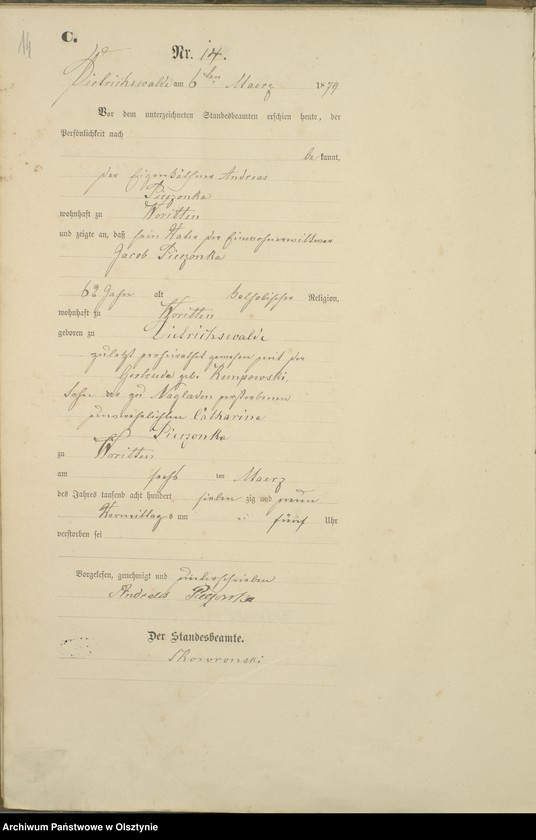 14
C.
Nr. 14.
Dietrichswalde am 6ten Maerz 1879
Vor dem unterzeichneten Standesbeamten erschien heute, der
Persönlichkeit nach
bekannt,
der Eigenkäthner Andreas
Pieczonka
wohnhaft zu Woritten
und zeigte an, daß sein Vater der Einwohnerwittwer
Jacob Pieczonka
62 Jahre alt katholischer Religion,
wohnhaft zu Woritten
geboren zu Dietrichswalde
zuletzt verheirathet gewesen mit der
Gertruda geb. Kempowski,
Sohn der zu Nagladen verstorbenen
unverehelichten Catharina
Pieczonka
zu Woritten
am sechs ten Maerz
des Jahres tausend acht hundert sieben zig und neun
Vormittags um fünf Uhr
verstorben sei
Vorgelesen, genehmigt und unterschrieben
Andreas Pieczonka
Der Standesbeamte.
Skowronski
Archiwum Państwowe w Olsztynie